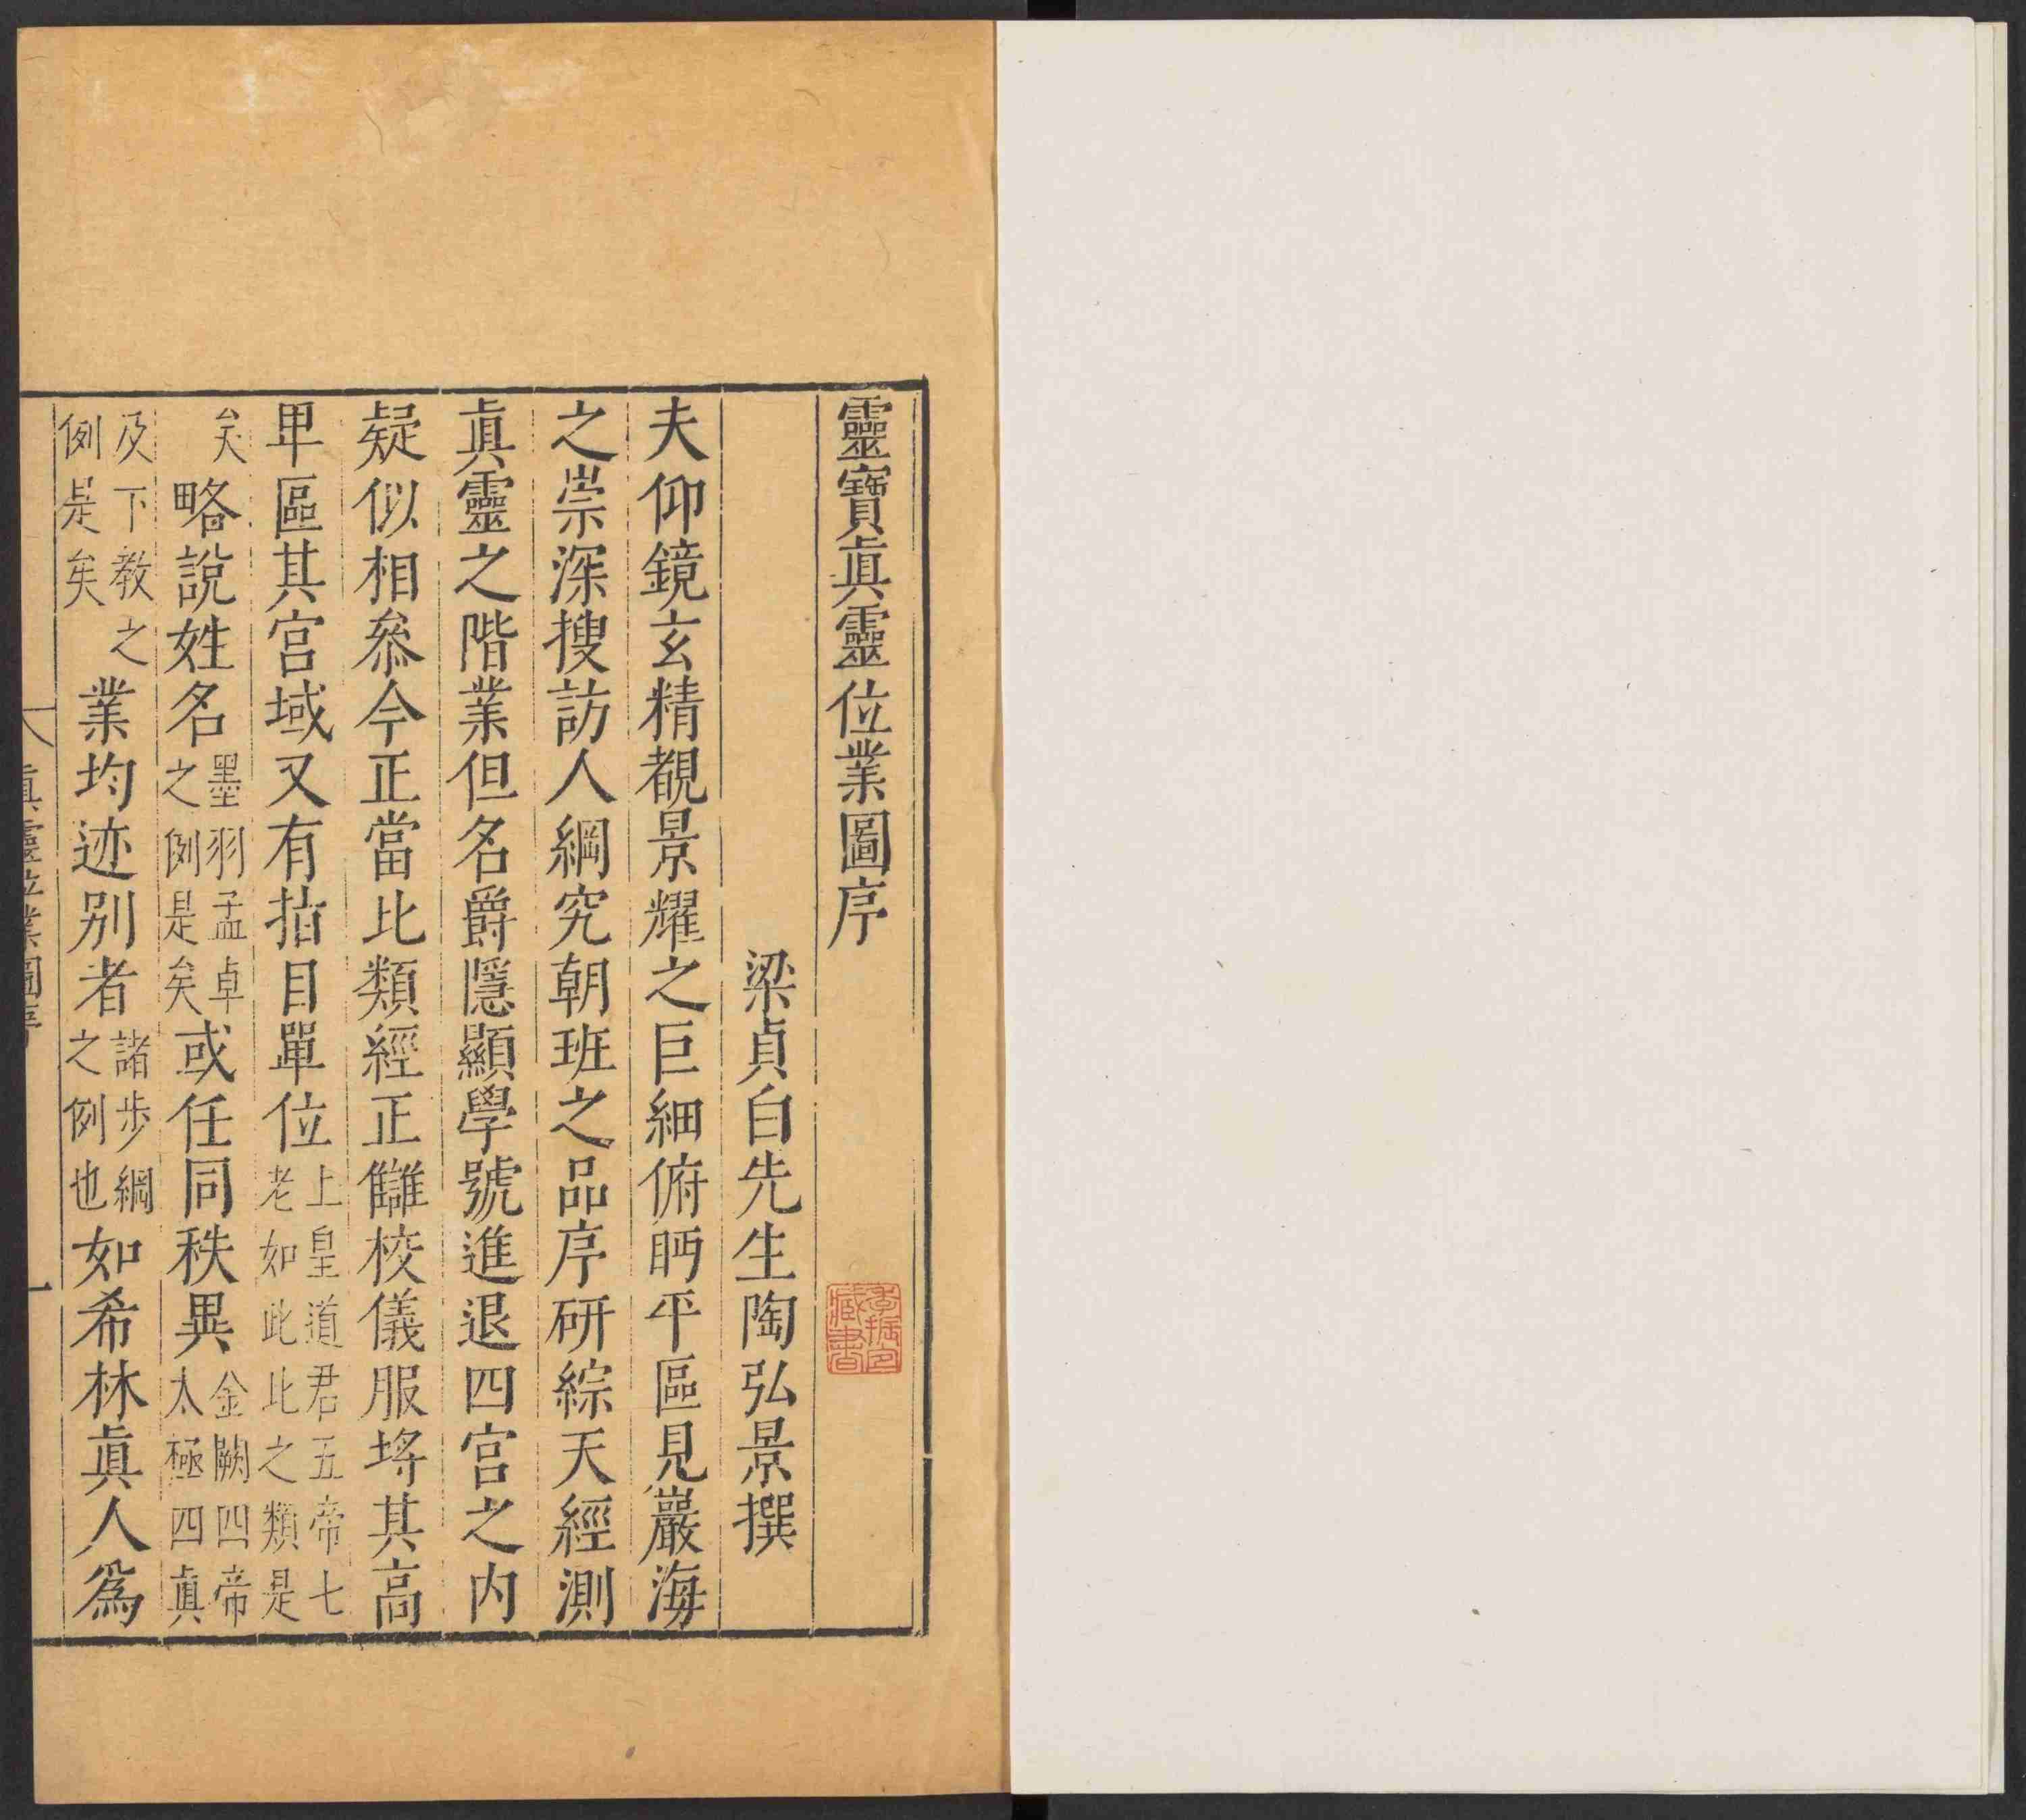 靈寶眞靈位業圖序
季振宜藏書
梁貞白先生陶弘景撰
夫仰鏡玄精覩景耀之巨細俯眄平區見巖海
之崇深搜訪人綱究朝班之品序研綜天經測
眞靈之階業但名爵隱顯學號進退四宮之内
疑似相叅今正當比類經正讎校儀服埒其高
卑區其宮域又有指目單位上皇道君五帝七老如此比之類是
矣略說姓名墨羽孟卓之例是矣或任同秩異金闕四帝太極四眞
及下教之例是矣業均迹别者諸步綱之例也如希林眞人爲
眞靈位業圖序 一